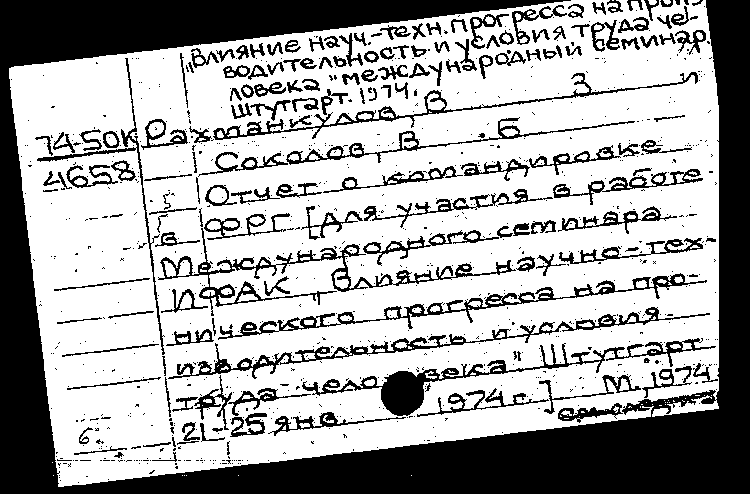 "Влияние науч.-техн. прогресса на произ-
водительность и условия труда че-
ловека", международный семинар.
Штутгарт. 1974.
74-50К Рахманкулов, В З и
4658 Соколов, В . Б
Отчет о командировке
в ФРГ [для участия в работе
Международного семинара
ИФАК "Влияние научно-тех-
нического прогресса на про-
изводительность и условия
труда человека". Штутгарт
21-25 янв. 1974 г.] М., 1974
6.